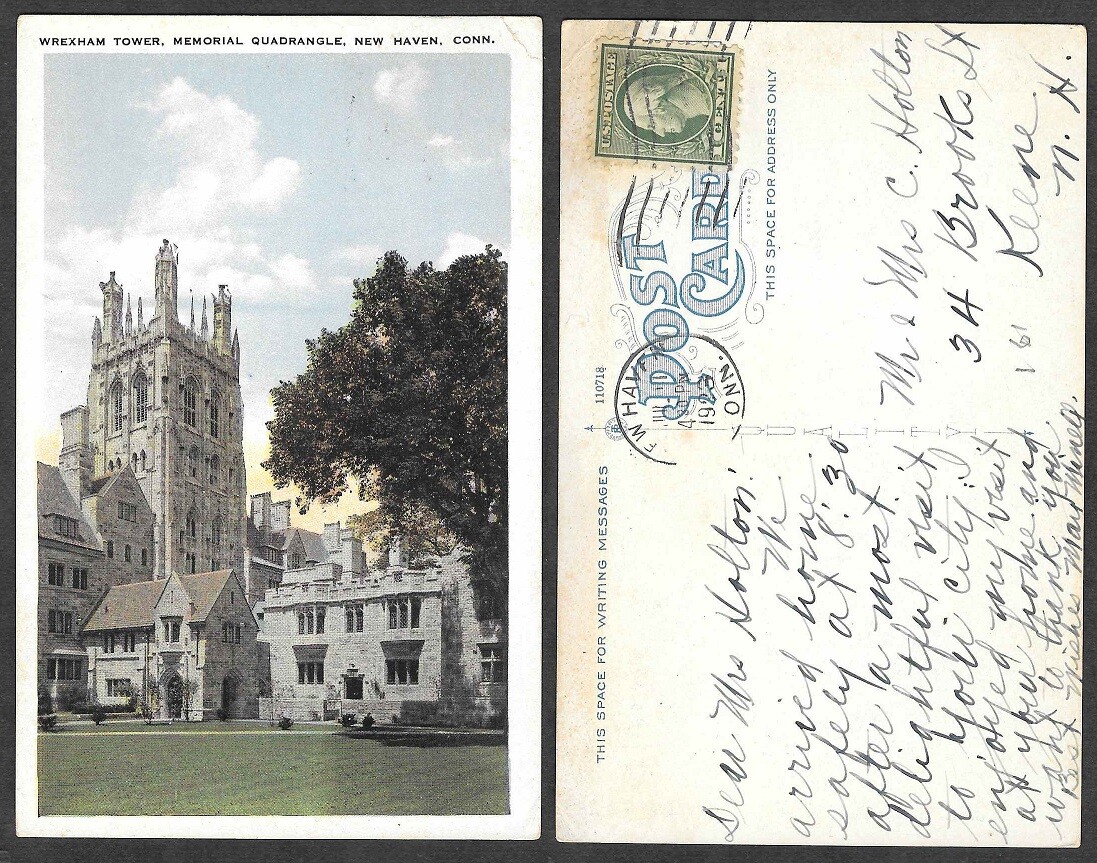 WREXHAM TOWER, MEMORIAL QUADRANGLE, NEW HAVEN, CONN.
U.S. POSTAGE
1 CENT 1
POST
CARD
THIS SPACE FOR ADDRESS ONLY
W HAV
4 PM
192
ONN.
110718
QUALITY
THIS SPACE FOR WRITING MESSAGES
Dear Mrs Holton!
We
arrived home
safely at 8:30
after a most
delightful visit
to your city.
enjoyed my visit
at your home and
want to thank you
Best Wishes May Minell.
Mr & Mrs C. Holton
34 Brooks St
Keene
N. H.
161